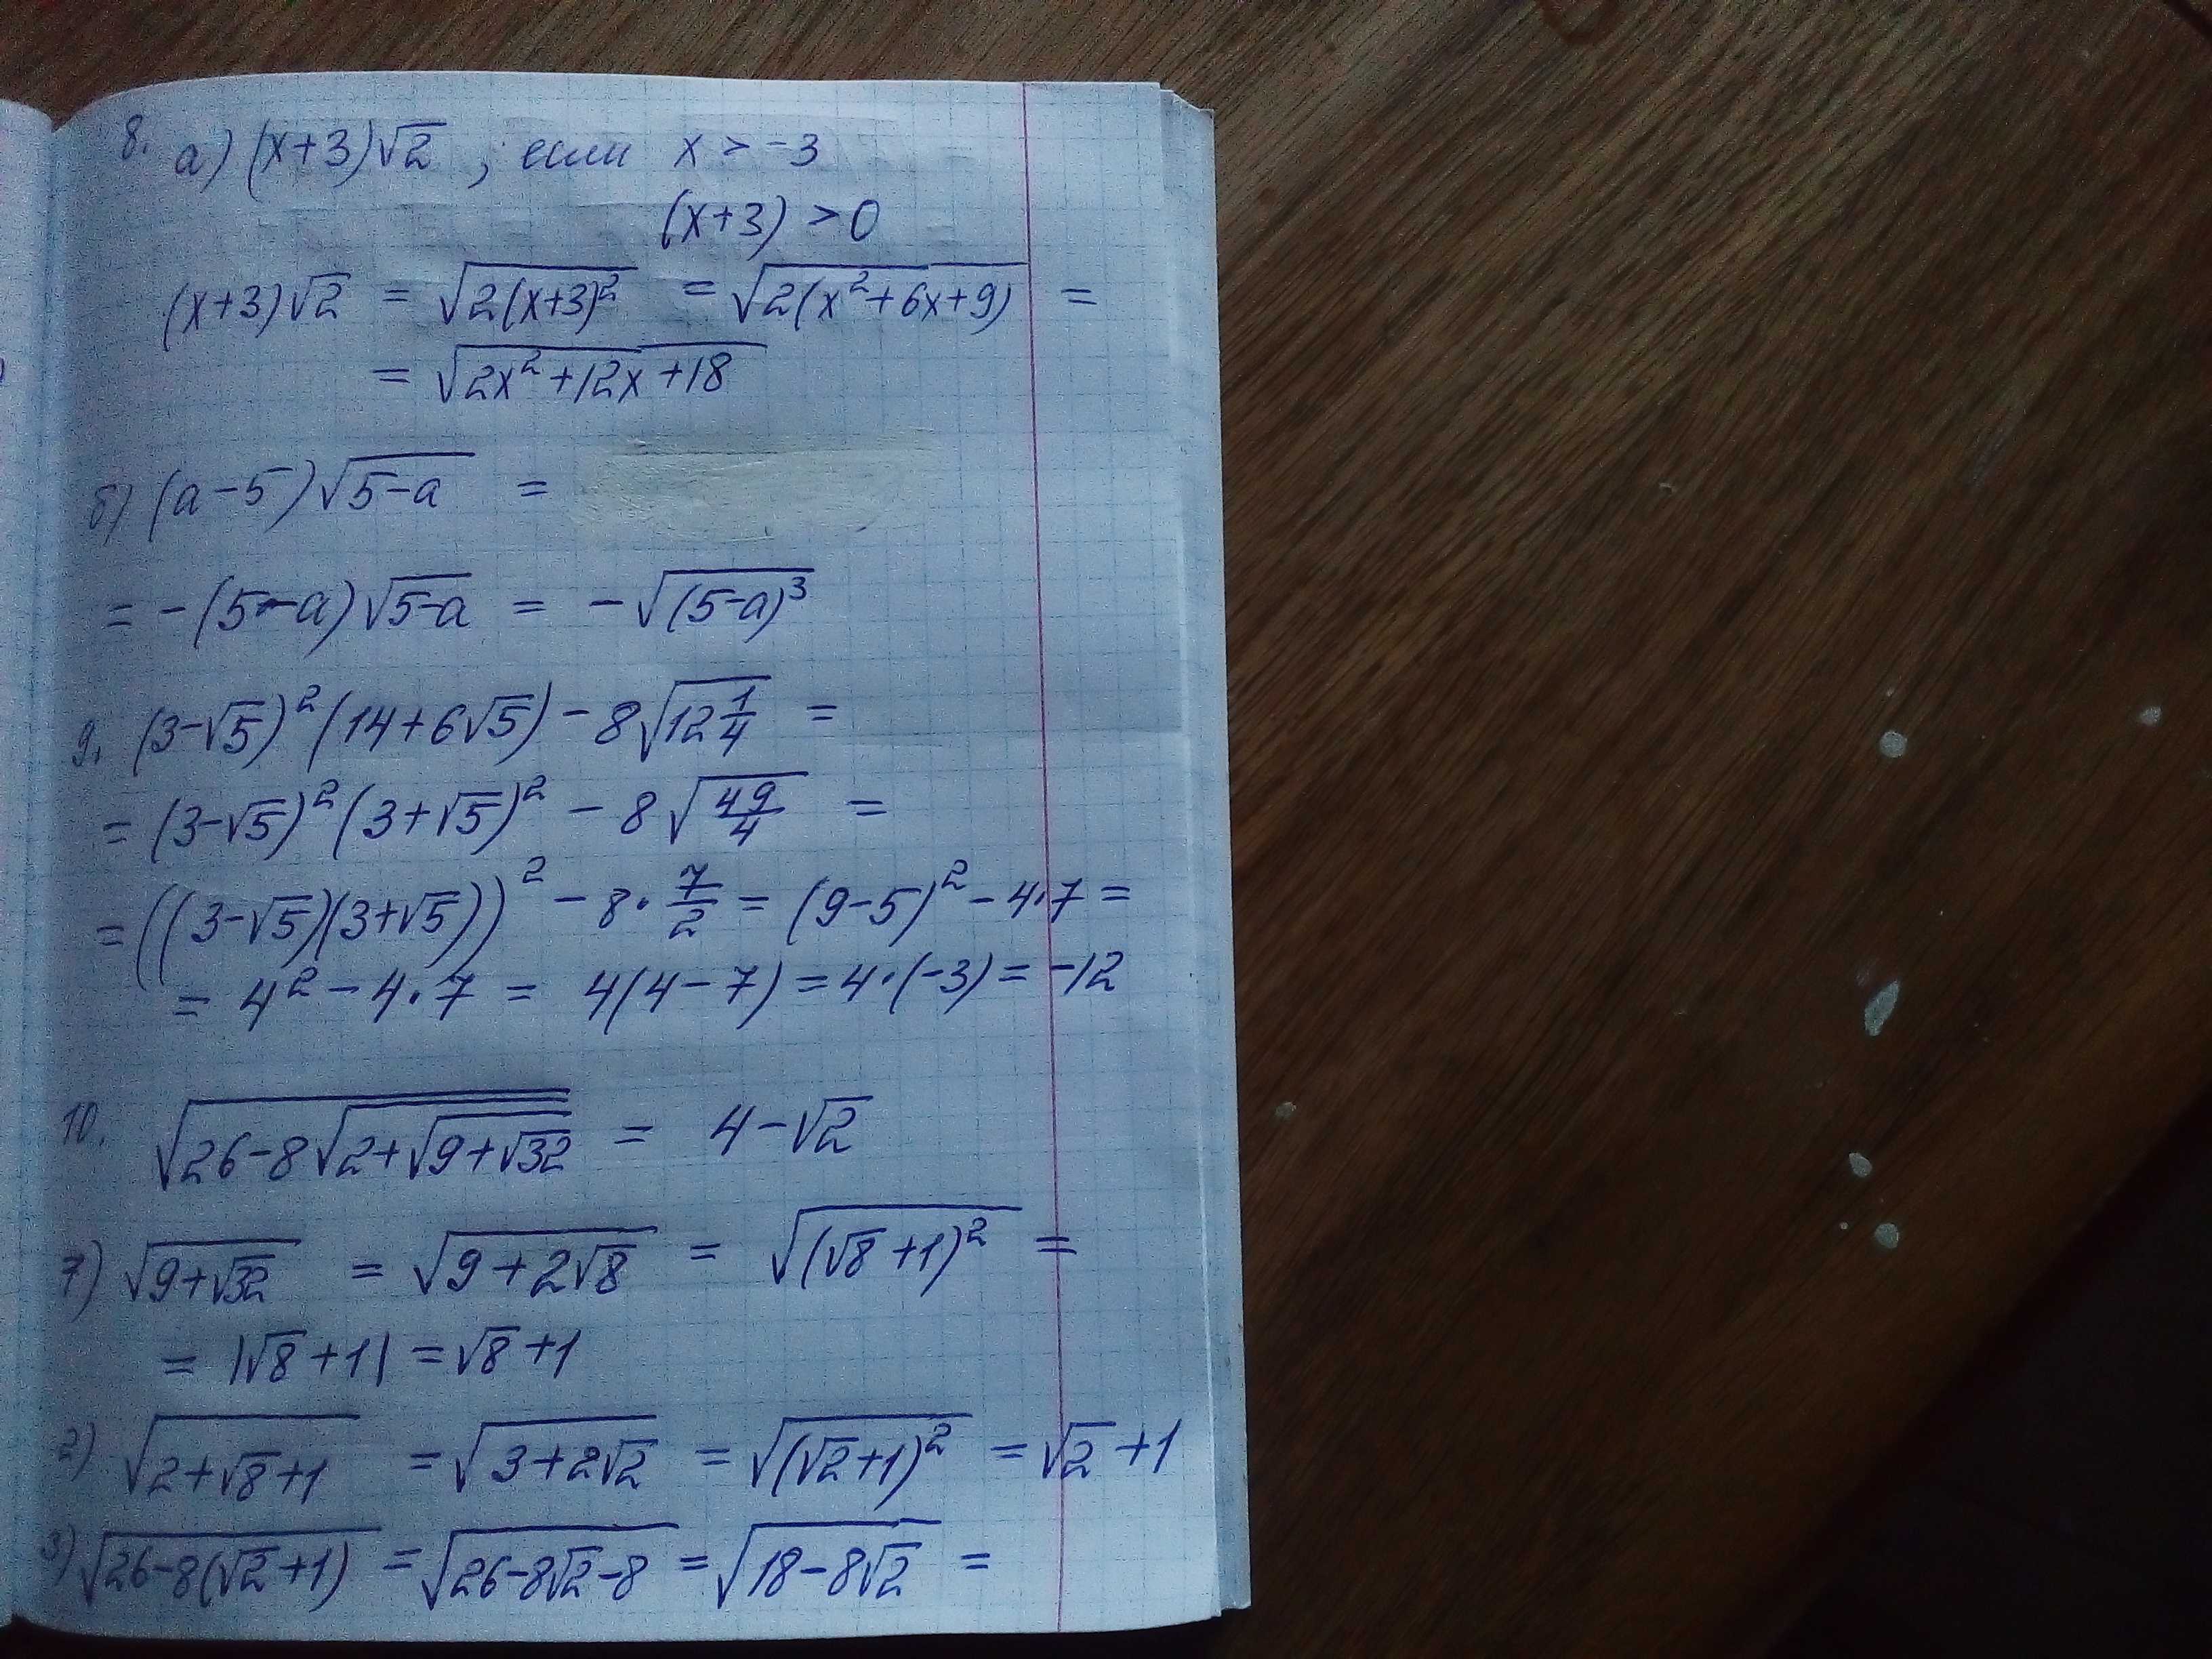 8. а) (x+3)√2 , если x > -3
(x+3) > 0
(x+3)√2 = √(2(x+3)²) = √(2(x²+6x+9)) =
= √(2x²+12x+18)
б) (a-5)√(5-a) =
= -(5-a)√(5-a) = -√((5-a)³)
9. (3-√5)²(14+6√5) - 8√(12 1/4) =
= (3-√5)²(3+√5)² - 8√(49/4) =
= ((3-√5)(3+√5))² - 8·7/2 = (9-5)² - 4·7 =
= 4² - 4·7 = 4(4-7) = 4·(-3) = -12
10. √(26-8√(2+√(9+√32))) = 4-√2
1) √(9+√32) = √(9+2√8) = √((√8+1)²) =
= |√8+1| = √8+1
2) √(2+√8+1) = √(3+2√2) = √((√2+1)²) = √2+1
3) √(26-8(√2+1)) = √(26-8√2-8) = √(18-8√2) =